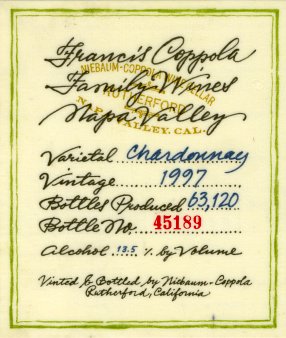 Francis Coppola
Family Wines
Napa Valley
NIEBAUM-COPPOLA
RUTHERFORD
N. P. VALLEY, CAL.
Varietal Chardonnay
Vintage 1997
Bottles Produced 63,120
Bottle No. 45189
Alcohol 13.5 % by Volume
Vinted & Bottled by Niebaum-Coppola
Rutherford, California